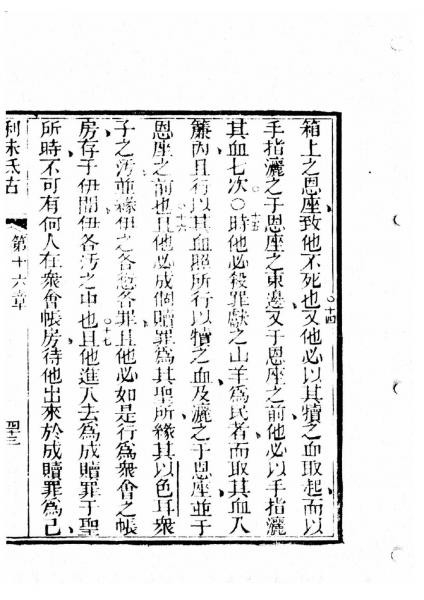 箱上之恩座致他不死也○十四又他必以其犢之血取起而以
手指灑之于恩座之東邊又于恩座之前他必以手指灑
其血七次○十五時他必殺罪獻之山羊為民者而取其血入
簾內且行以其血照所行以犢之血及灑之于恩座並于
恩座之前也○十六且他必成個贖罪為其聖所緣其以色耳衆
子之污並緣伊之各愆各罪且他必如是行為衆會之帳
房存于伊間伊各污之中也○十七且他進入去為成贖罪于聖
所時不可有何人在衆會帳房待他出來於成贖罪為己
利未氏古 第十六章 四十三